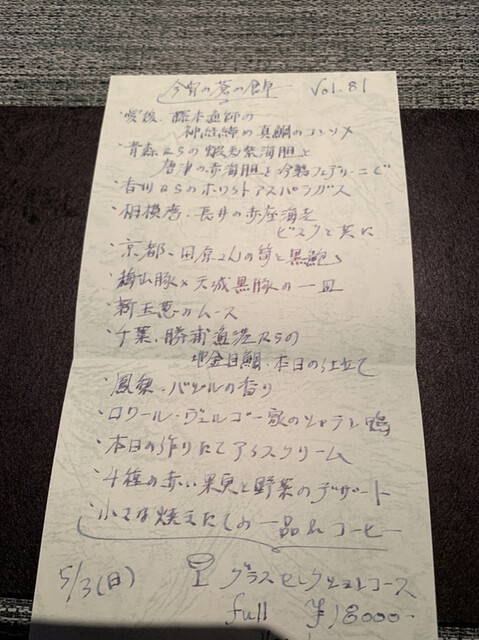 今宵の蒼の食卓 Vol.81
・愛媛、藤本漁師の
神経締め真鯛のコンソメ
・青森からの蝦夷紫海胆と
唐津の赤海胆を冷製フェデリーニで
・香川からのホワイトアスパラガス
・相模湾・長井の赤座海老
ビスクと共に
・京都、田原さんの筍と黒鮑
・梅山豚×天城黒豚の一皿
・新玉葱のムース
・千葉、勝浦漁港からの
地金目鯛、本日の仕立て
・鳳梨、バジルの香り
・ロワール・ヴェルゴー家のシャラン鴨
・本日の作りたてアイスクリーム
・4種の赤い果実と野菜のデザート
・小さな焼きたての一品&コーヒー
5/3(日) グラスセレクションコース
full ¥18000-